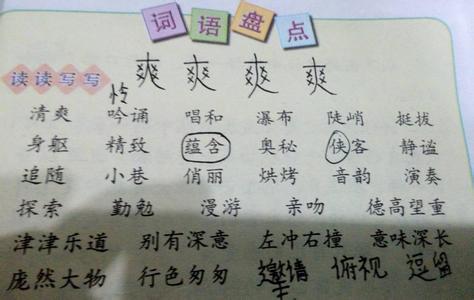 词语盘点
读读写写 爽 爽 爽 爽
清爽 吟诵 唱和 瀑布 陡峭 挺拔
身躯 精致 蕴含 奥秘 侠客 静谧
追随 小巷 俏丽 烘烤 音韵 演奏
探索 勤勉 漫游 亲吻 德高望重
津津乐道 别有深意 左冲右撞 意味深长
庞然大物 行色匆匆 邀请 俯视 逗留